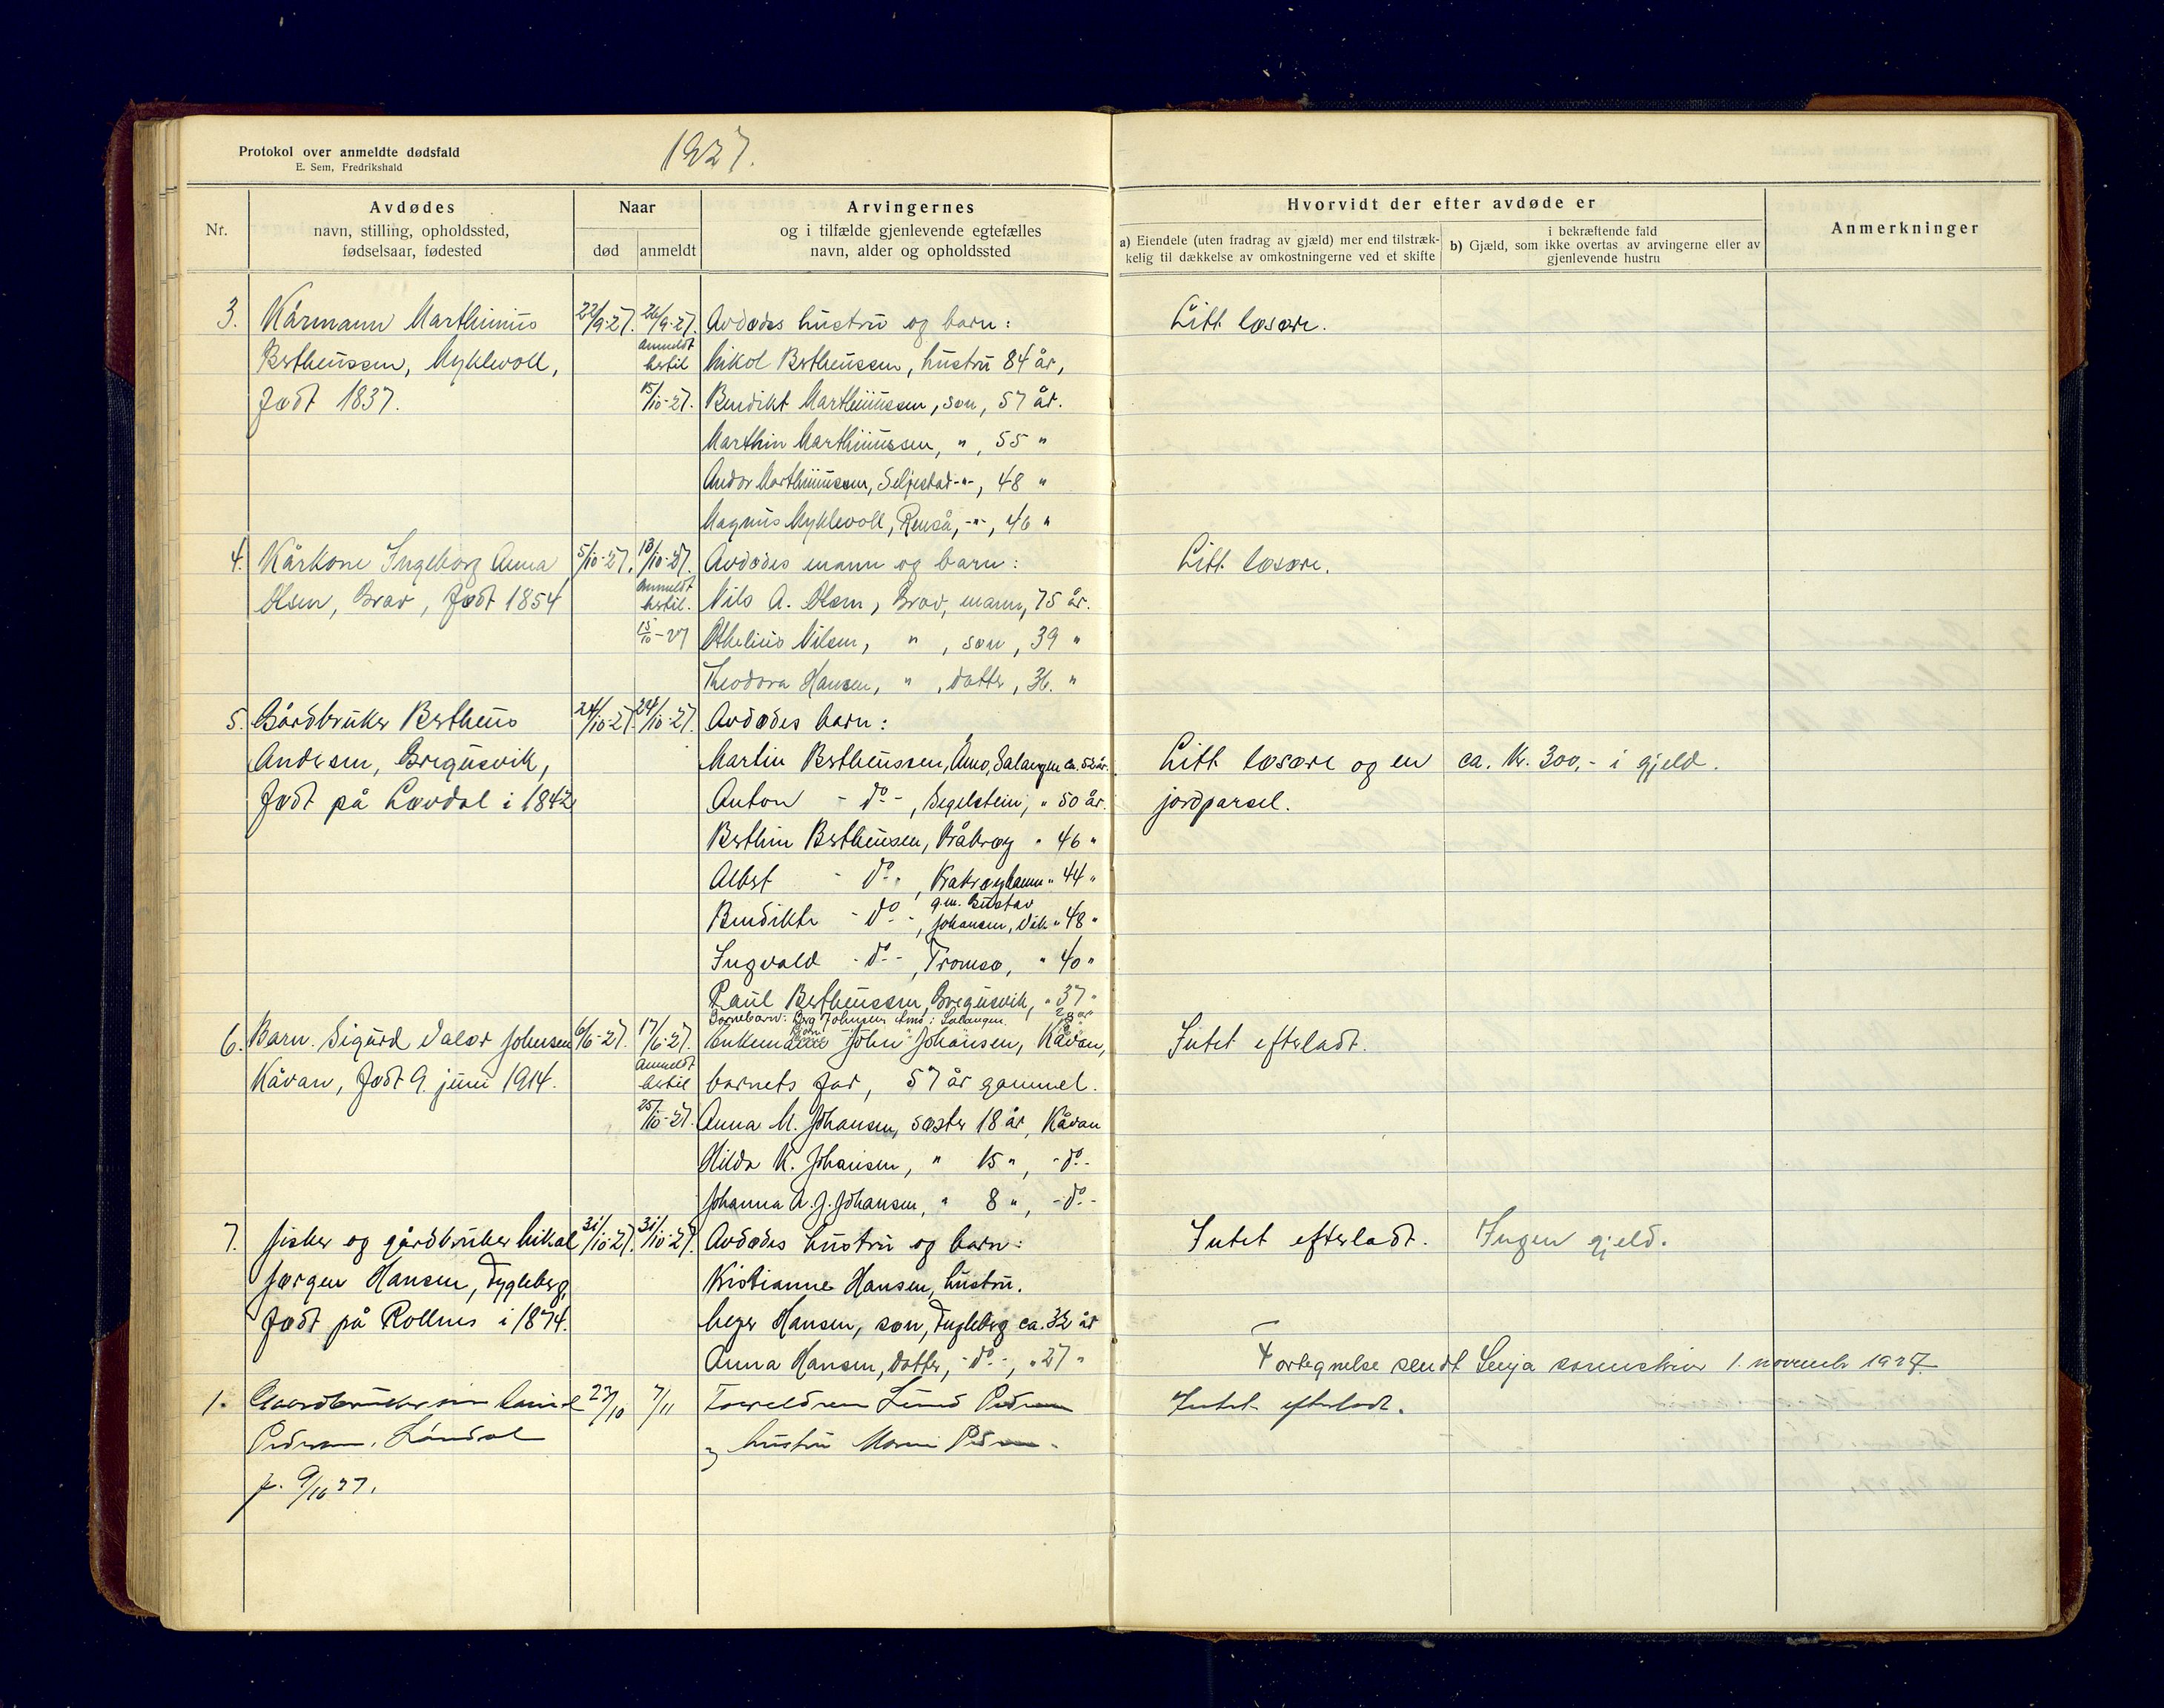 Protokol over anmeldte dødsfald
E. Sem, Fredrikshald
1927.
Nr.
Avdødes
navn, stilling, opholdssted,
fødselsaar, fødested
Naar
død
anmeldt
Arvingernes
og i tilfælde gjenlevende egtefælles
navn, alder og opholdssted
Hvorvidt der efter avdøde er
a) Eiendele (uten fradrag av gjæld) mer end tilstræk-
kelig til dækkelse av omkostningerne ved et skifte
i bekræftende fald
b) Gjæld, som ikke overtas av arvingerne eller av
gjenlevende hustru
Anmerkninger
3. Kårmann Marthinius 22/9-27. 26/9-27. Avdødes hustru og barn: Litt løsøre.
Bertheussen, Myklevoll, anmeldt hertil Nikol Bertheussen, hustru 84 år,
født 1837. 15/10-27. Bendikt Marthinussen, søn, 57 år.
Marthin Marthinussen, " , 55 "
Andor Marthinussen, Seljestad -"-, 48 "
Magnus Myklevoll, Renså, -"-, 46 "
4. Kårkone Ingeborg Anna 5/10-27. 13/10-27. Avdødes mann og barn: Litt løsøre.
Olsen, Brav, født 1854 anmeldt hertil. Nils A. Olsen, Brav, mann, 75 år.
15/10-27 Othelius Nilsen, " , søn, 39 "
Theodora Hansen, " , datter, 36. "
5. Gårdbruker Bertheus 24/10-27. 24/10-27. Avdødes barn:
Andersen, Gregusvik, Martin Bertheussen, Åmo, Salangen ca. 52 år. Litt løsøre og en ca. kr. 300,- i gjeld.
født på Løvdal i 1842 Anton - do -, Segelstein, " 50 år. jordparsel.
Berthin Bertheussen, Kråkrøy " 46 "
Albert - do -, Krakrøyhamn " 44 "
Bendikte - do -, g.m. Gustav Johansen, Vik " 48 "
Ingvald - do -, Tromsø, " 40 "
Paul Bertheussen, Gregusvik, " 37 "
Barnebarn: Borg Johnsen Åmo i Salangen
6. Barn. Sigurd Valør Johnsen 6/6-27. 17/6-27. Enkemann John Johansen, Kåvan, Intet efterladt.
Kåvan, født 9. juni 1914. anmeldt hertil barnets far, 57 år gammel.
25/10-27. Anna M. Johansen, søster 18 år, Kåvan
Hilda K. Johansen, " 15 ", - do -
Johanna A. J. Johansen, " 8 ", - do -
7. Fisker og gårdbruker Mikal 31/10-27. 31/10-27. Avdødes hustru og barn: Intet efterladt. Ingen gjeld.
Jørgen Hansen, Fygleberg, Kristianne Hansen, hustru.
født på Rollnes i 1874. Meyer Hansen, søn, Fugleberg ca. 32 år
Anna Hansen, datter, - do -, " 27 " Fortegnelse sendt Senja sorenskriver 1. november 1927.
1. Gaardbruker 27/10 7/11 Foreldren Pedersen Intet efterladt.
Pedersen, Løndal og hustru Pedersen.
f. 9/10 27.